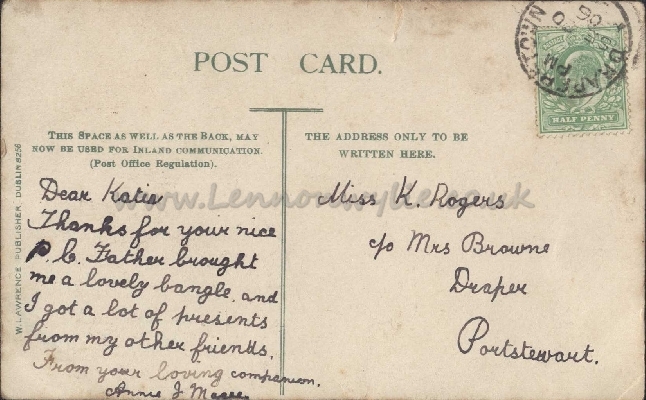 POST CARD.
DRAPERSTOWN
PM
06
HALF PENNY
THIS SPACE AS WELL AS THE BACK, MAY
NOW BE USED FOR INLAND COMMUNICATION.
(Post Office Regulation).
THE ADDRESS ONLY TO BE
WRITTEN HERE.
W. LAWRENCE, PUBLISHER, DUBLIN 8256
Dear Katie
Thanks for your nice
P C. Father brought
me a lovely bangle, and
I got a lot of presents
from my other friends.
From your loving companion,
Annie J
Miss K. Rogers
c/o Mrs Browne
Draper
Portstewart.